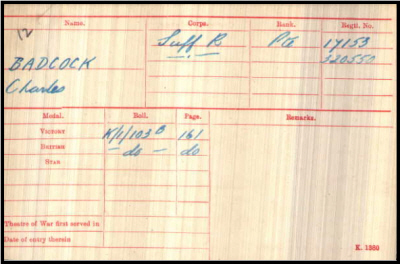 12
Name. Corps. Rank. Regtl. No.
BADCOCK Suff R Pte 17153
Charles 320550
Medal. Roll. Page. Remarks.
VICTORY K/1/103 B 161
BRITISH — do — do
STAR
Theatre of War first served in
Date of entry therein
K. 1380